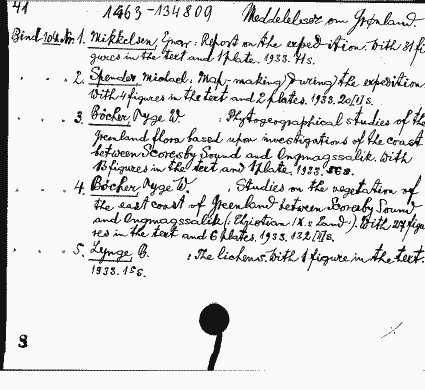 41 1463-134809 Meddelelser om Grønland.
Bind 104. Nr. 1. Mikkelsen, Ejnar: Report on the expedition. With 31 fi
gures in the text and 1 plate. 1933. 71 s.
2. Spender Michael: Map-making during the expedition.
With 4 figures in the text and 2 plates. 1933. 20[1] s.
3. Böcher Tyge W : Phytogeographical studies of the
Greenland flora based upon investigations of the coast
between Scoresby Sound and Angmagssalik. With
figures in the text and 1 plate. 1933. 56 s.
4. Böcher Tyge W. : Studies on the vegetation of
the east coast of Greenland between Scoresby Sound
and Angmagssalik (: Land:). With 27 figu
res in the text and 6 plates. 1933. 132 [1] s.
5. Lynge B. : The lichens. With 1 figure in the text.
1933.